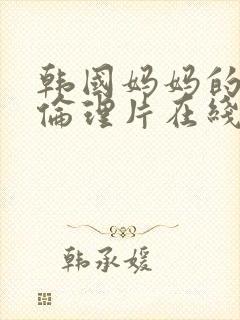 韩国妈妈的
倫理片在线
韩承媛